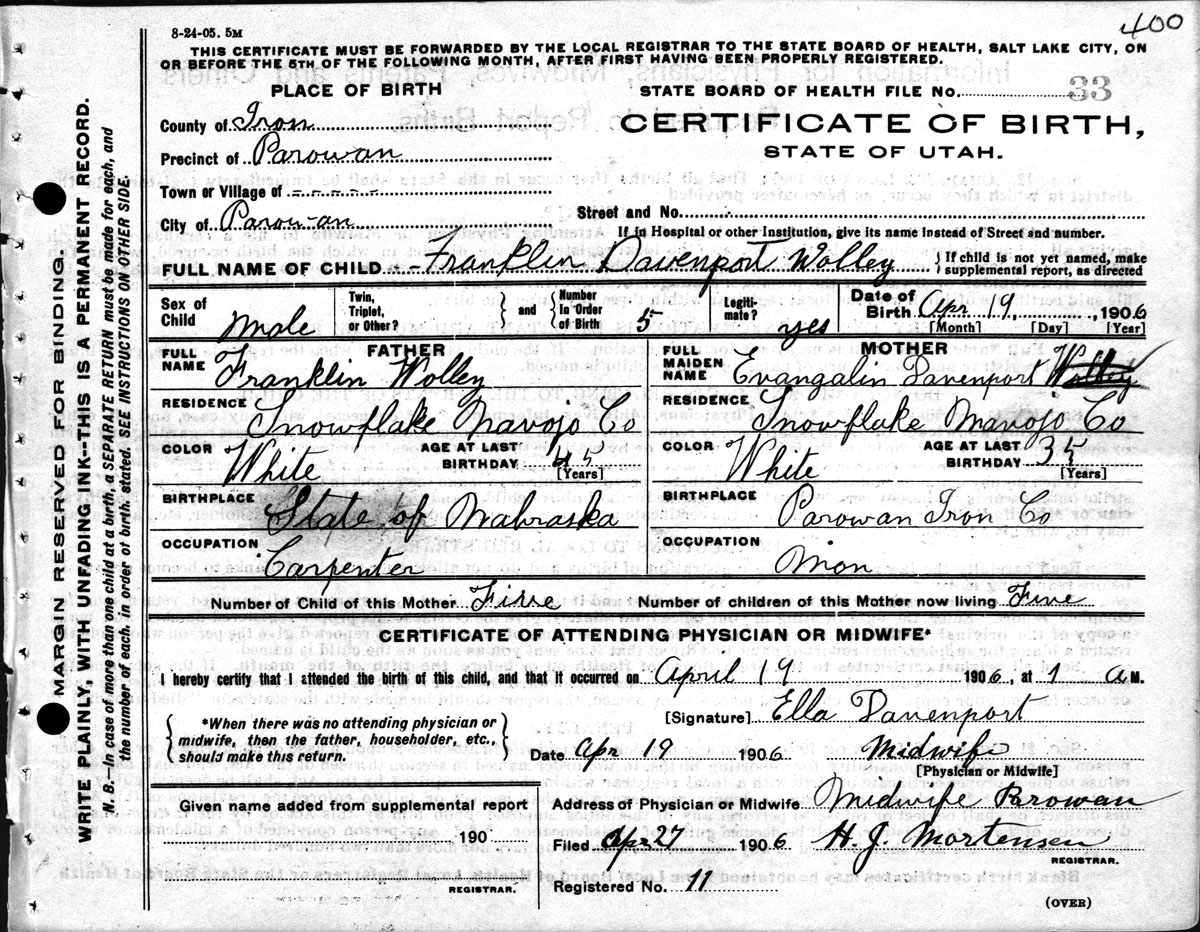 400
8-24-05. 5M
THIS CERTIFICATE MUST BE FORWARDED BY THE LOCAL REGISTRAR TO THE STATE BOARD OF HEALTH, SALT LAKE CITY, ON
OR BEFORE THE 5TH OF THE FOLLOWING MONTH, AFTER FIRST HAVING BEEN PROPERLY REGISTERED.
PLACE OF BIRTH
STATE BOARD OF HEALTH FILE No. 33
County of Iron
CERTIFICATE OF BIRTH,
Precinct of Parowan
STATE OF UTAH.
Town or Village of -----
City of Parowan
Street and No.
If in Hospital or other Institution, give its name instead of Street and number.
FULL NAME OF CHILD Franklin Davenport Wolley {If child is not yet named, make
supplemental report, as directed
Sex of Child Male
Twin, Triplet, or Other?
and
Number in Order of Birth 5
Legitimate? yes
Date of Birth Apr 19, 1906
[Month] [Day] [Year]
FATHER
FULL NAME Franklin Wolley
MOTHER
FULL MAIDEN NAME Evangalin Davenport Wolley
RESIDENCE Snowflake Navojo Co
RESIDENCE Snowflake Navojo Co
COLOR White AGE AT LAST BIRTHDAY 45 [Years]
COLOR White AGE AT LAST BIRTHDAY 35 [Years]
BIRTHPLACE State of Nabraska
BIRTHPLACE Parowan Iron Co
OCCUPATION Carpenter
OCCUPATION Mon
Number of Child of this Mother Five
Number of children of this Mother now living Five
CERTIFICATE OF ATTENDING PHYSICIAN OR MIDWIFE*
I hereby certify that I attended the birth of this child, and that it occurred on April 19 1906, at 1 a M.
{*When there was no attending physician or
midwife, then the father, householder, etc.,
should make this return.}
[Signature] Ella Davenport
Date Apr 19 1906 Midwife
[Physician or Midwife]
Given name added from supplemental report
190
REGISTRAR.
Address of Physician or Midwife Midwife Parowan
Filed Apr 27 1906 H. J. Mortensen
REGISTRAR.
Registered No. 11
(OVER)
MARGIN RESERVED FOR BINDING.
WRITE PLAINLY, WITH UNFADING INK--THIS IS A PERMANENT RECORD.
N. B.—In case of more than one child at a birth, a SEPARATE RETURN must be made for each, and
the number of each, in order of birth, stated. SEE INSTRUCTIONS ON OTHER SIDE.